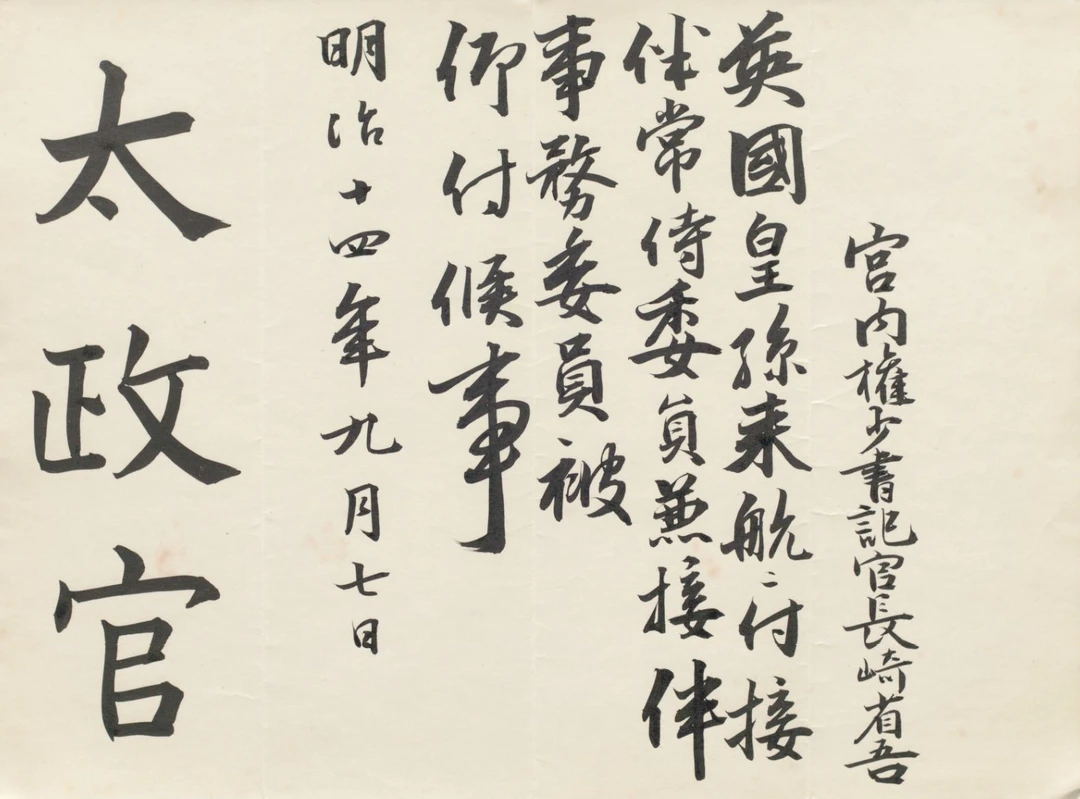 宮内権少書記官長崎省吾
英國皇孫来航ニ付接
伴常侍委員兼接伴
事務委員被
仰付候事
明治十四年九月七日
太政官